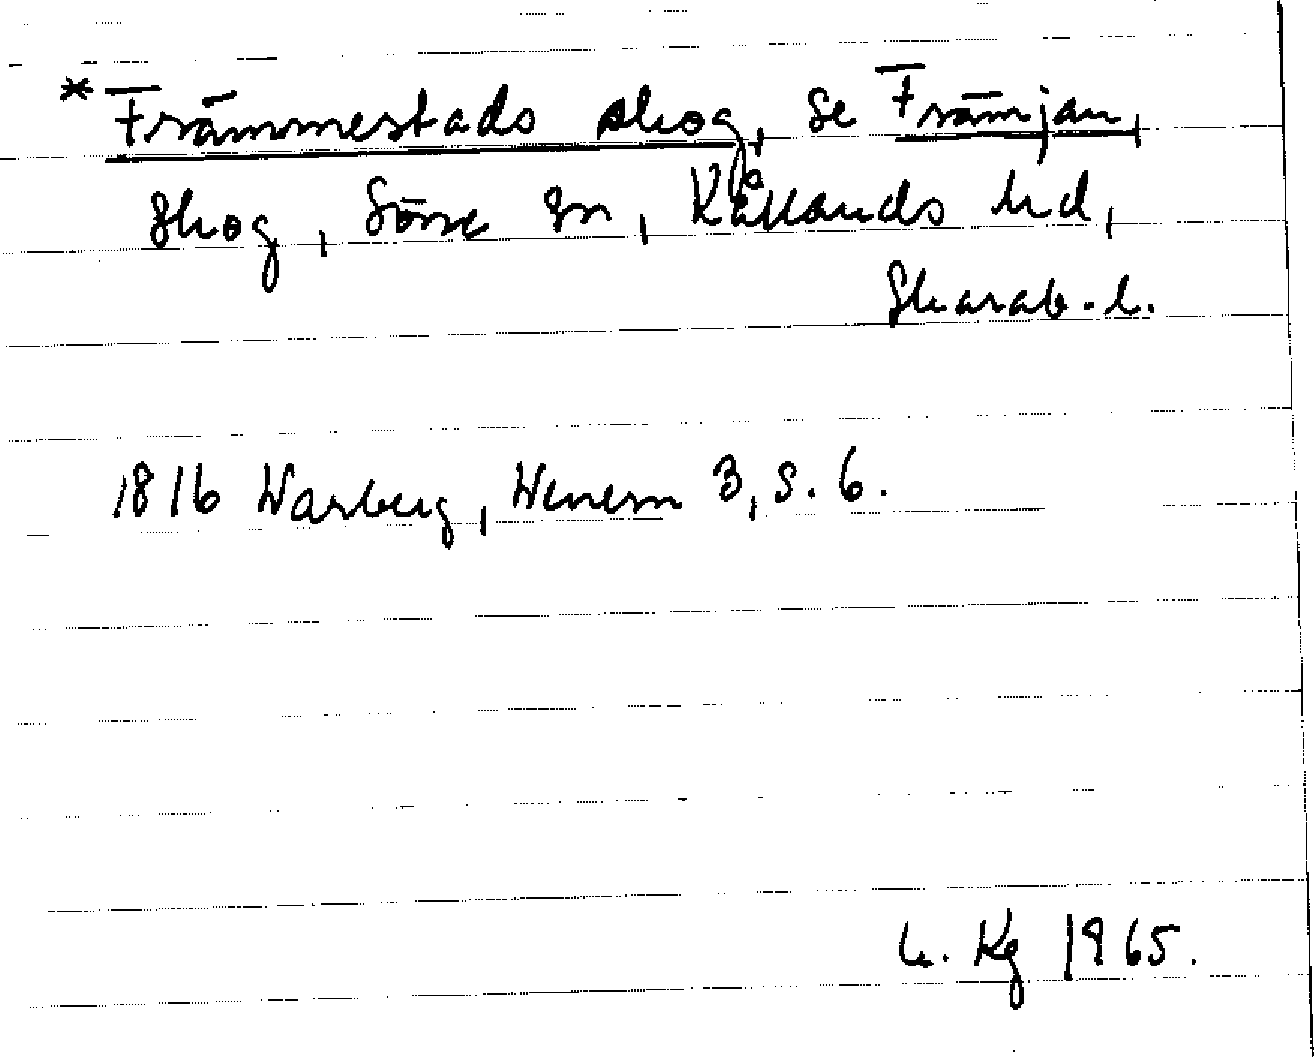 * Främmestads skog, se Främjan,
skog, Söne sn, Kållands hd,
Skarab. l.
1816 Warberg, Wenern 3, s. 6.
L. Kg 1965.